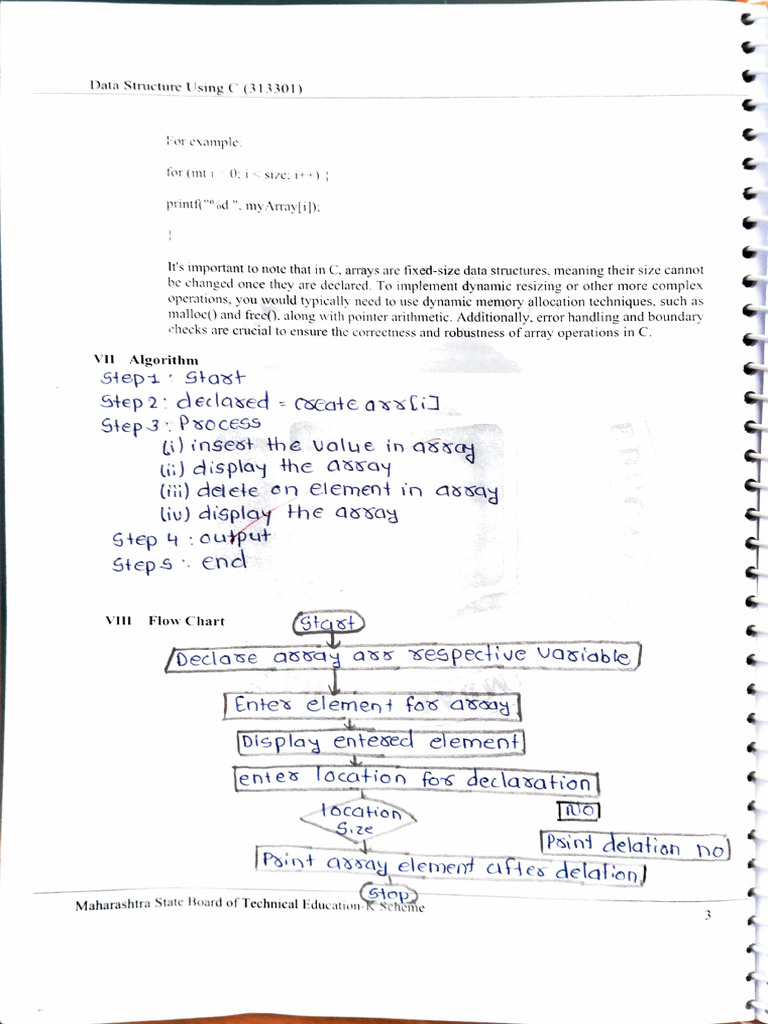 Data Structure Using C (313301)
For example:
for (int i = 0; i < size; i++) {
printf("%d ", myArray[i]);
}
It's important to note that in C, arrays are fixed-size data structures, meaning their size cannot
be changed once they are declared. To implement dynamic resizing or other more complex
operations, you would typically need to use dynamic memory allocation techniques, such as
malloc() and free(), along with pointer arithmetic. Additionally, error handling and boundary
checks are crucial to ensure the correctness and robustness of array operations in C.
VII Algorithm
Step 1 : Start
Step 2 : declared = create arr[i]
Step 3 : Process
(i) insert the value in array
(ii) display the array
(iii) delete on element in array
(iv) display the array
Step 4 : output
Step 5 : end
VIII Flow Chart
Start
Declare array arr respective variable
Enter element for array
Display entered element
enter location for declaration
location
Size
NO
Print delation no
Print array element after delation
Stop
Maharashtra State Board of Technical Education-K Scheme
3